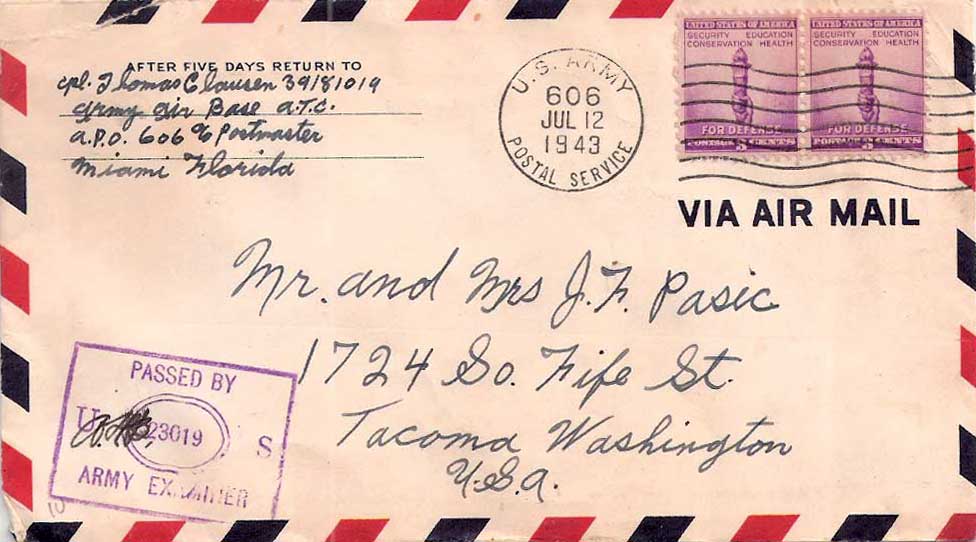 AFTER FIVE DAYS RETURN TO
Cpl. Thomas Clausen 39181019
Army Air Base A.T.C.
A.P.O. 606 % Postmaster
Miami Florida
U.S. ARMY
606
JUL 12
1943
POSTAL SERVICE
UNITED STATES OF AMERICA UNITED STATES OF AMERICA
SECURITY EDUCATION SECURITY EDUCATION
CONSERVATION HEALTH CONSERVATION HEALTH
FOR DEFENSE FOR DEFENSE
POSTAGE 3 CENTS POSTAGE 3 CENTS
VIA AIR MAIL
Mr. and Mrs J. F. Pasic
1724 So. Fife St.
Tacoma Washington
U.S.A.
PASSED BY
U 23019 S
ARMY EXAMINER